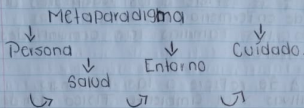 Metaparadigma
Persona
Salud
Entorno
Cuidado